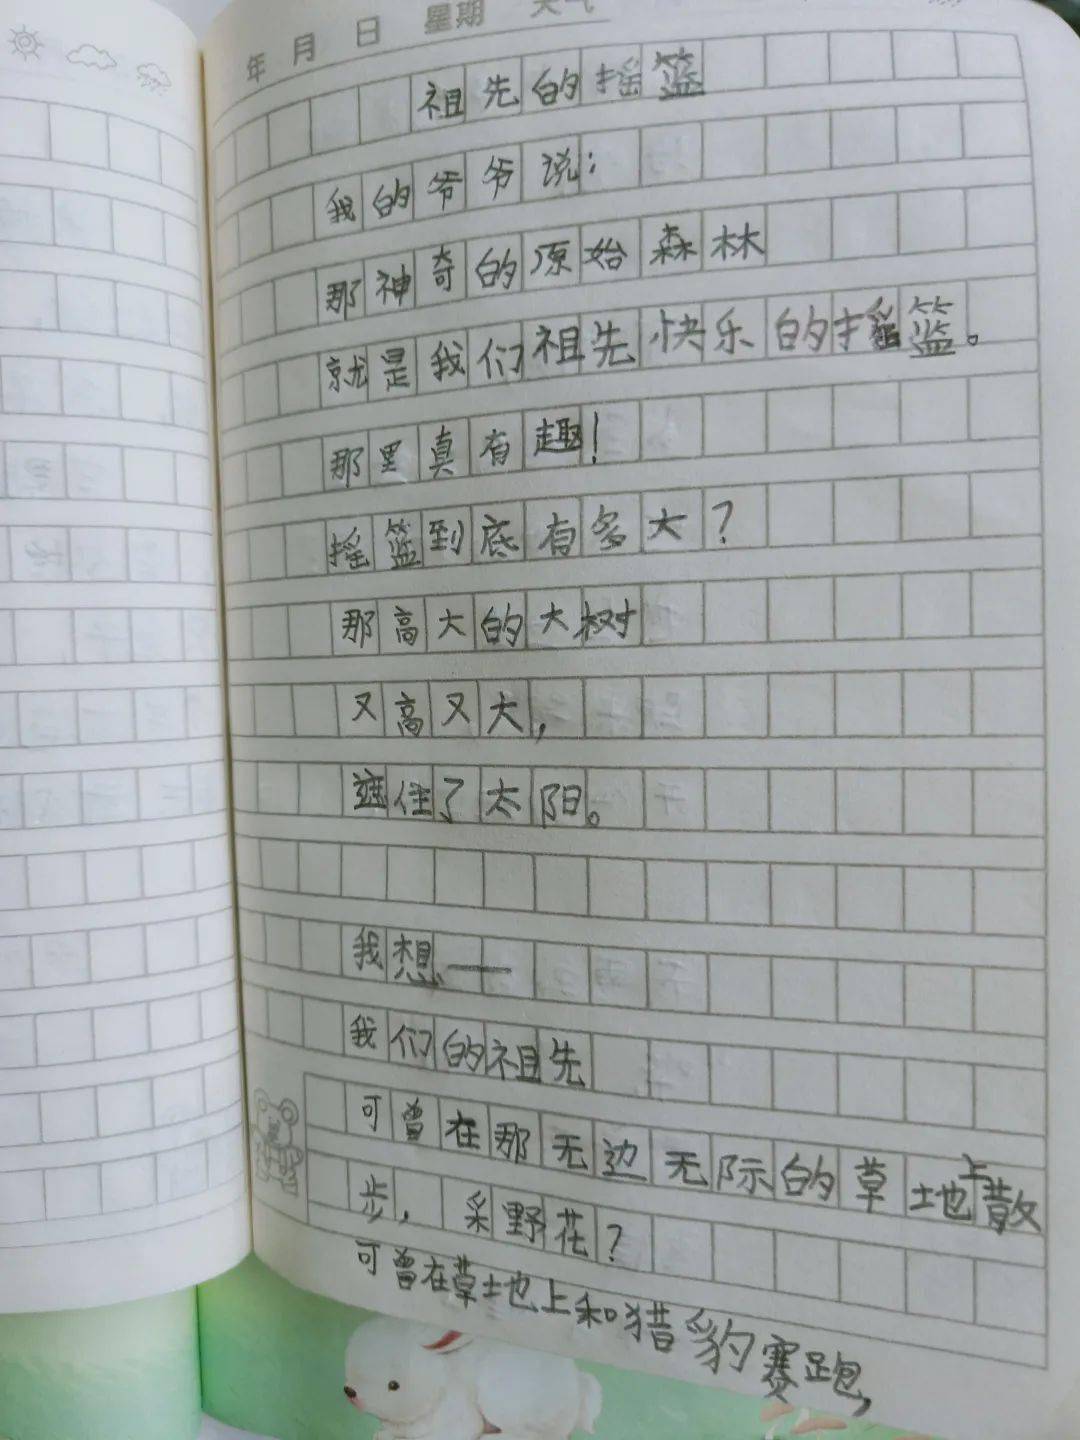 年 月 日 星期 天气
祖先的摇篮
我的爷爷说：
那神奇的原始森林
就是我们祖先快乐的摇篮。
那里真有趣！
摇篮到底有多大？
那高大的大树
又高又大，
遮住了太阳。
我想——
我们的祖先
可曾在那无边无际的草地上散
步，采野花？
可曾在草地上和猎豹赛跑，